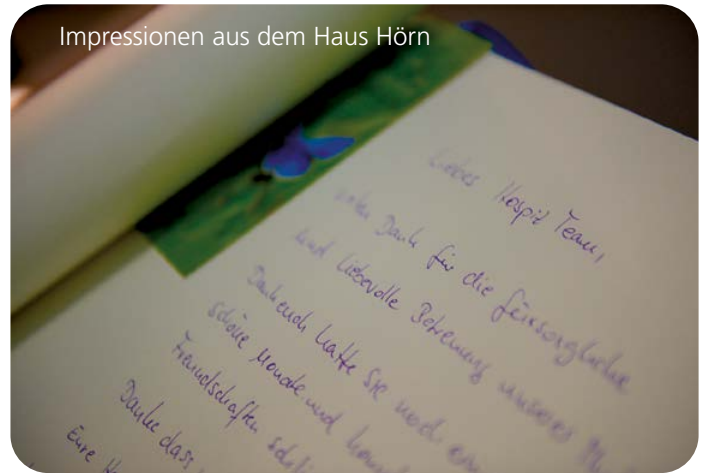 Impressionen aus dem Haus Hörn
Liebes Hospiz Team,
vielen Dank für die fürsorgliche
und liebevolle Betreuung unserer
Dank euch hatte sie noch
schöne Monate und
Freundschaften
Danke dass
Eure